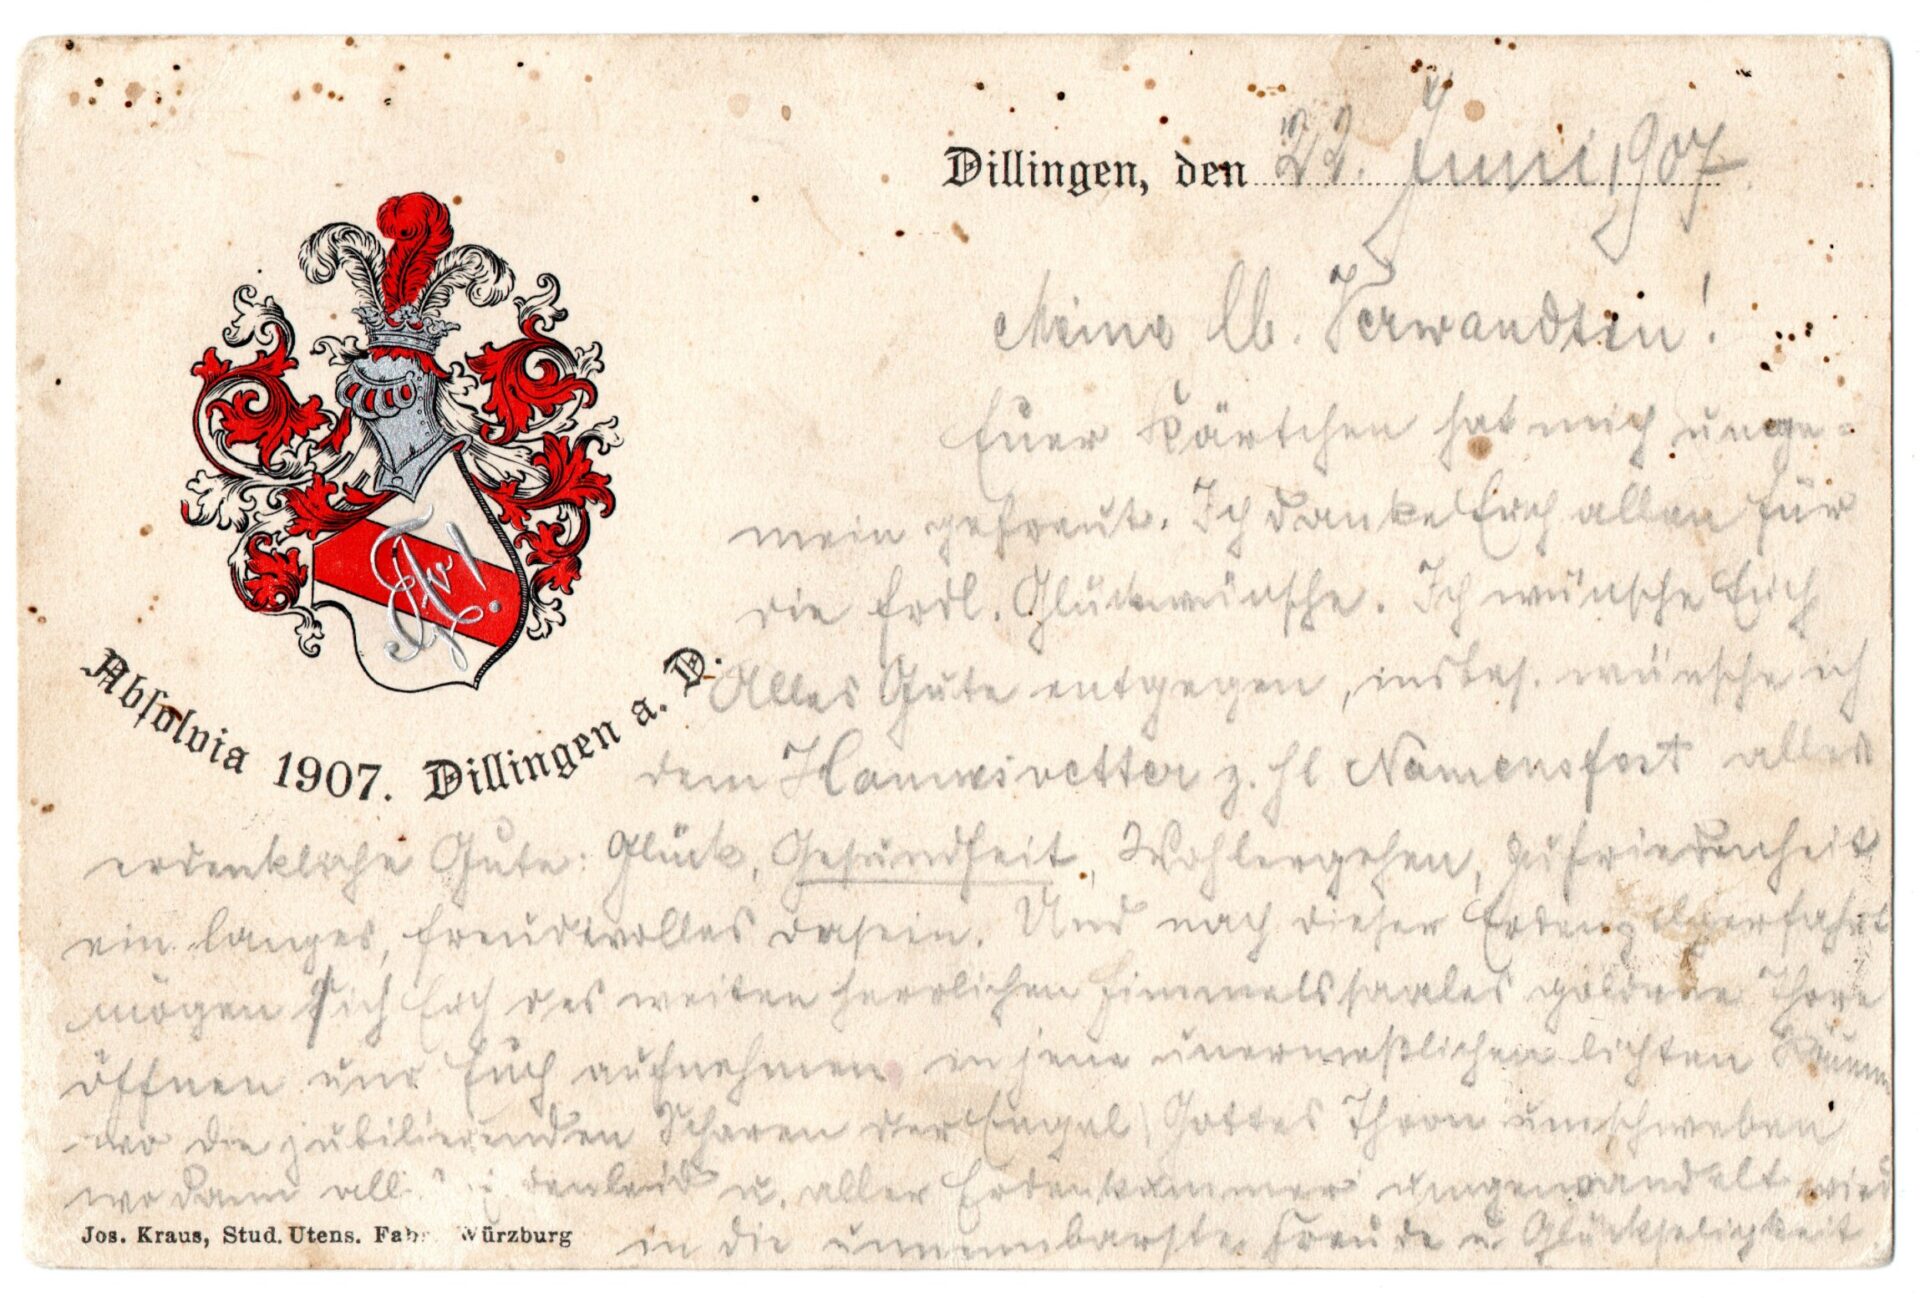 Dillingen, den 22. Juni 1907.
Meine lb. Verwandten!
Euer Kärtchen hat mich unge=
mein gefreut. Ich danke Euch allen für
die frdl. Glückwünsche. Ich wünsche Euch
Alles Gute entgegen, insbes. wünsche ich
dem z. hl Namensfest alles
erdenkliche Gute: Glück, Gesundheit, Wohlergehen, Zufriedenheit
ein langes, freudvolles Dasein. Und nach dieser Erdenpilgerfahrt
mögen sich Euch des weiten herrlichen Himmelssaales goldene Thore
öffnen und Euch aufnehmen in jene unermeßlichen lichten Räume
wo die jubilierenden Scharen der Engel Gottes Thron umschweben
wo dann all u. aller Erdenkummer umgewandelt wird
in die unnennbarste Freude u. Glückseligkeit
Absolvia 1907. Dillingen a. D.
Jos. Kraus, Stud. Utens. Fabr. Würzburg